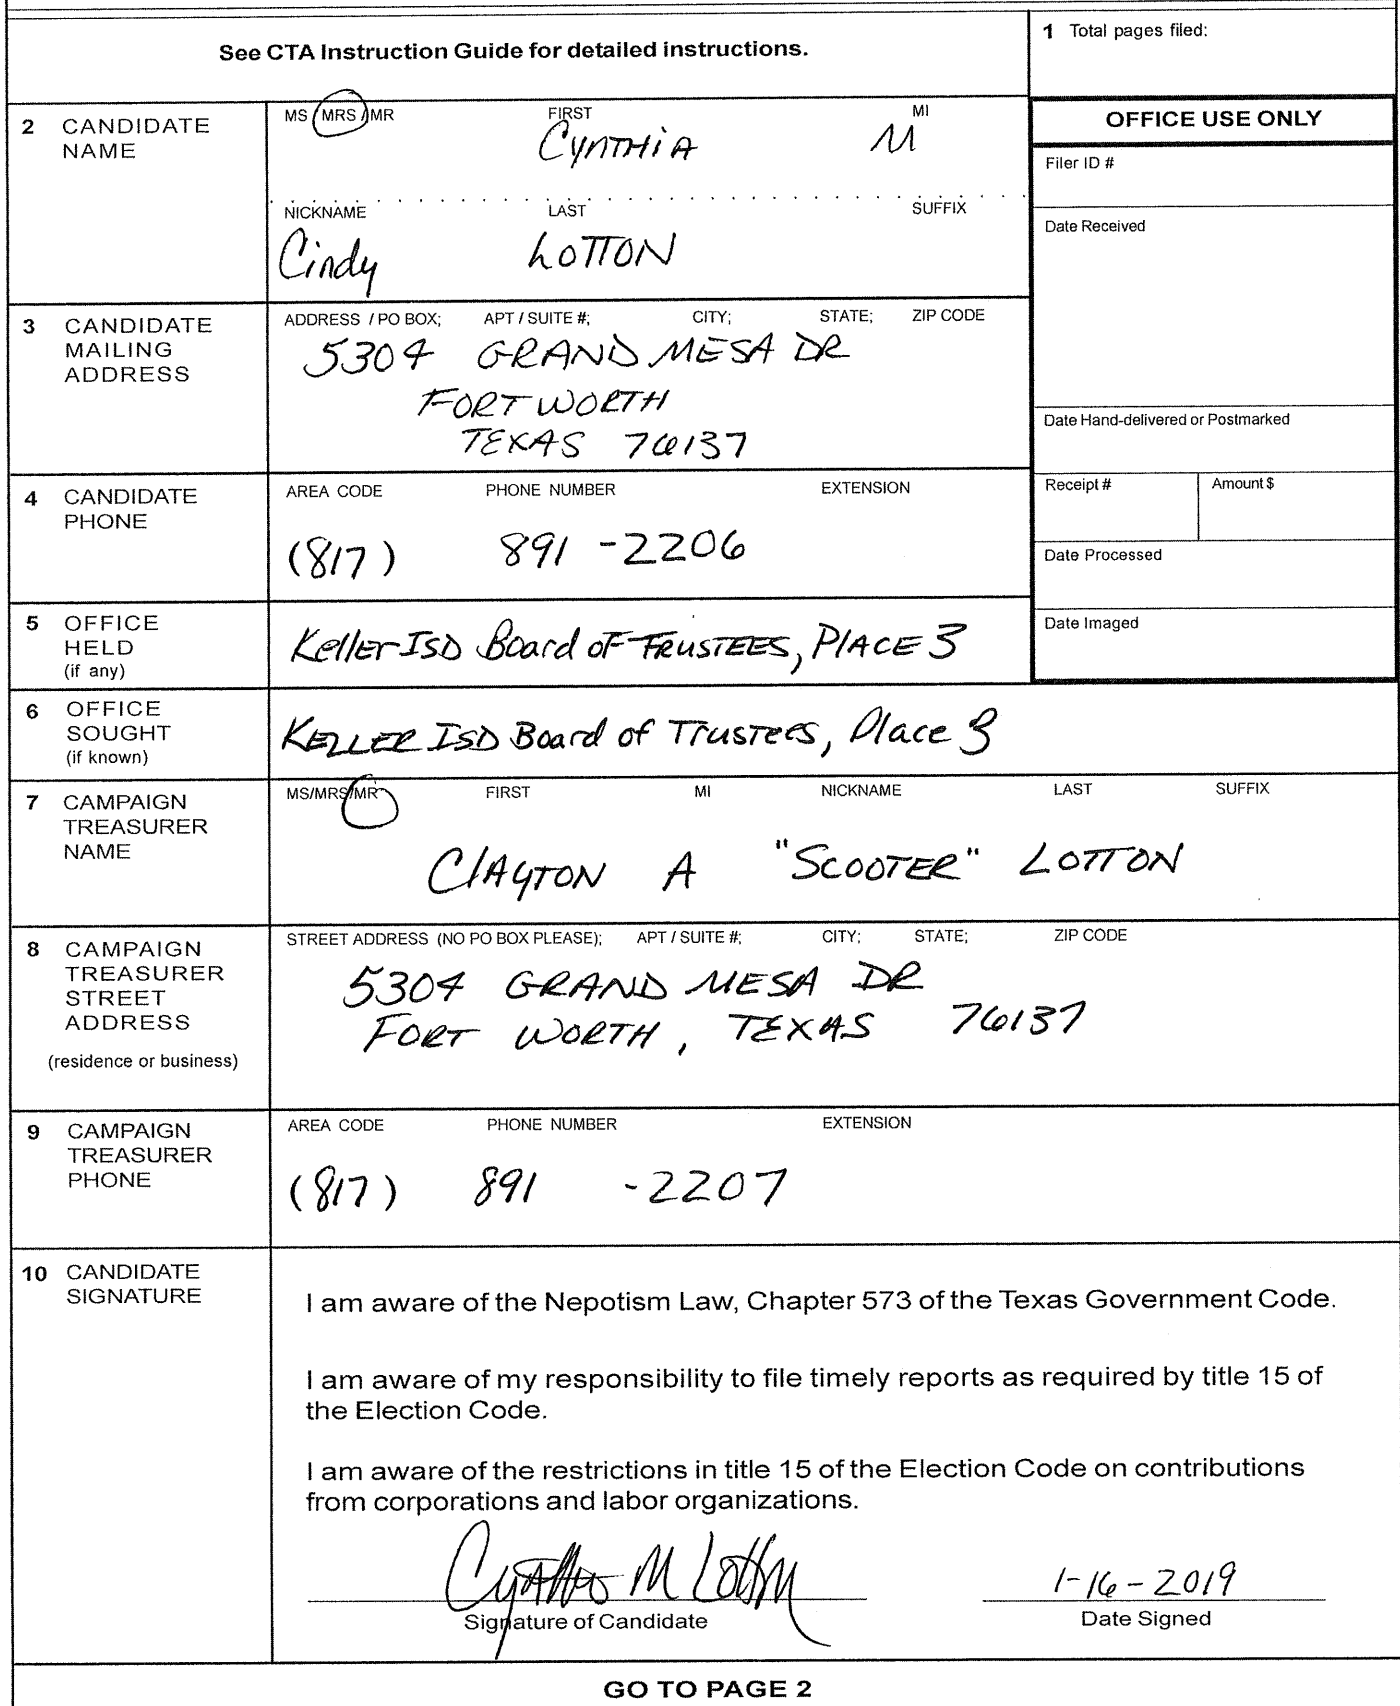 See CTA Instruction Guide for detailed instructions.
1 Total pages filed:
2 CANDIDATE NAME
MS / MRS / MR FIRST MI
CYNTHIA M
NICKNAME LAST SUFFIX
Cindy LOTTON
OFFICE USE ONLY
Filer ID #
Date Received
Date Hand-delivered or Postmarked
Receipt # Amount $
Date Processed
Date Imaged
3 CANDIDATE MAILING ADDRESS
ADDRESS / PO BOX; APT / SUITE #; CITY; STATE; ZIP CODE
5304 GRAND MESA DR
FORT WORTH
TEXAS 76137
4 CANDIDATE PHONE
AREA CODE PHONE NUMBER EXTENSION
(817) 891-2206
5 OFFICE HELD (if any)
Keller ISD Board of TRUSTEES, PLACE 3
6 OFFICE SOUGHT (if known)
KELLER ISD Board of Trustees, Place 3
7 CAMPAIGN TREASURER NAME
MS/MRS/MR FIRST MI NICKNAME LAST SUFFIX
CLAYTON A "SCOOTER" LOTTON
8 CAMPAIGN TREASURER STREET ADDRESS
(residence or business)
STREET ADDRESS (NO PO BOX PLEASE); APT / SUITE #; CITY; STATE; ZIP CODE
5304 GRAND MESA DR
FORT WORTH, TEXAS 76137
9 CAMPAIGN TREASURER PHONE
AREA CODE PHONE NUMBER EXTENSION
(817) 891 -2207
10 CANDIDATE SIGNATURE
I am aware of the Nepotism Law, Chapter 573 of the Texas Government Code.
I am aware of my responsibility to file timely reports as required by title 15 of
the Election Code.
I am aware of the restrictions in title 15 of the Election Code on contributions
from corporations and labor organizations.
Cynthia M Lotton 1-16-2019
Signature of Candidate Date Signed
GO TO PAGE 2